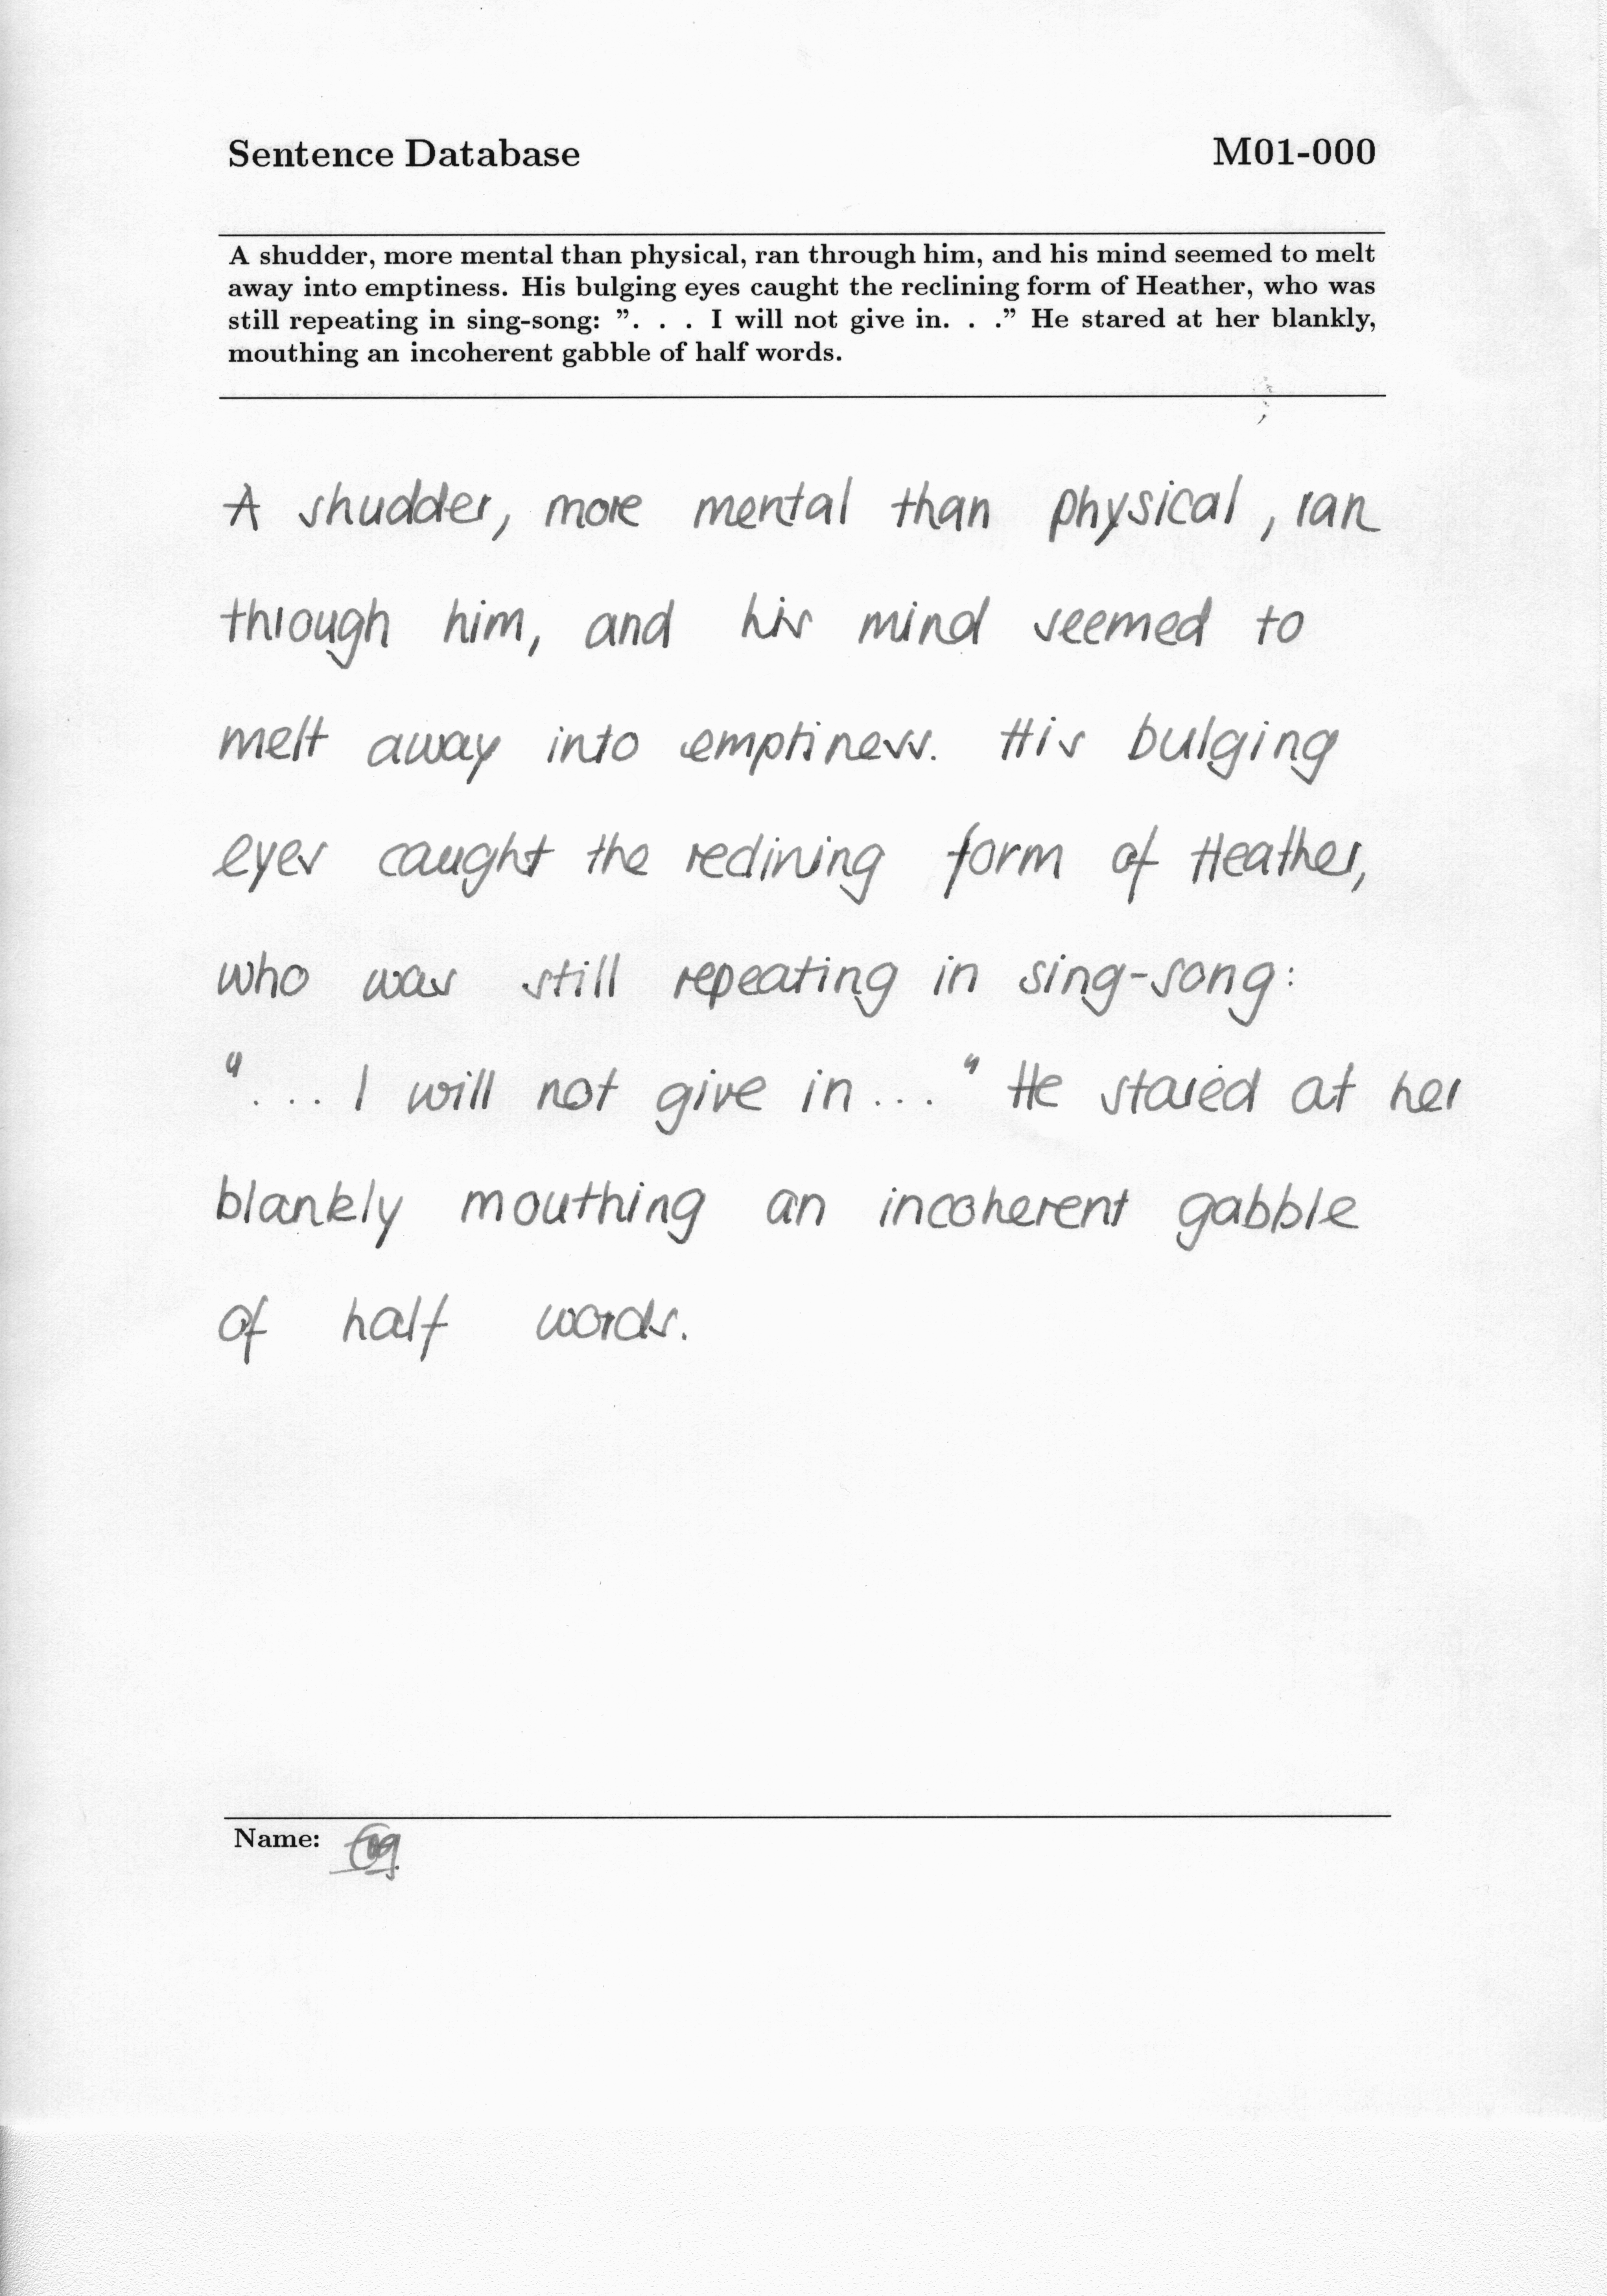 Sentence Database M01-000
A shudder, more mental than physical, ran through him, and his mind seemed to melt
away into emptiness. His bulging eyes caught the reclining form of Heather, who was
still repeating in sing-song: ”. . . I will not give in. . .” He stared at her blankly,
mouthing an incoherent gabble of half words.
A shudder, more mental than physical, ran
through him, and his mind seemed to
melt away into emptiness. His bulging
eyes caught the reclining form of Heather,
who was still repeating in sing-song:
"... I will not give in..." He stared at her
blankly mouthing an incoherent gabble
of half words.
Name: